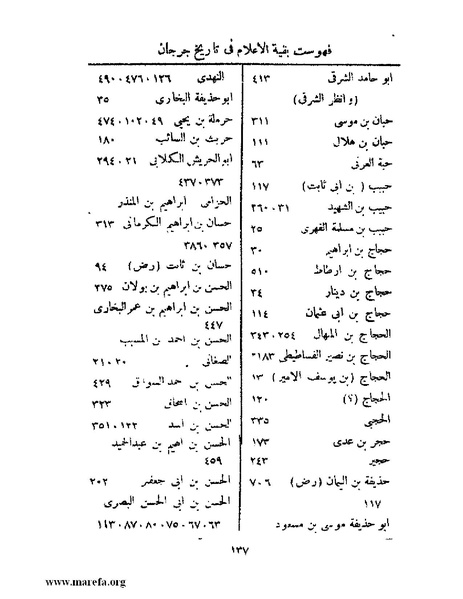 فهرست بقية الاعلام فى تاريخ جرجان
ابو حامد الشرقى ٤١٣
( وانظر الشرقى )
حبان بن موسى ٣١١
حبان بن هلال ١١١
حبة العرنى ٦٣
حبيب ( بن ابى ثابت ) ١١٧
حبيب بن الشهيد ٣١٠٢٦٠
حبيب بن مسلمة الفهرى ٢٥
حجاج بن ابراهيم ٣٠
حجاج بن ارطاط ٥١٠
حجاج بن دينار ٣٤
حجاج بن ابى عثمان ١١٤
الحجاج بن المنهال ٢٥٤، ٣٤٣
الحجاج بن نصير الفساطيطى ١٨٣
الحجاج ( بن يوسف الامير ) ١٣
الحجاج (؟) ١٢٠
الحجبى ٣٣٥
حجر بن عدى ١٧٣
حجير ٢٤٣
حذيفة بن اليمان (رض) ٦، ٧
١١٧
ابو حذيفة موسى بن مسعود
النهدى ١٢٦، ٤٧٦، ٤٩٠
ابو حذيفة البخارى ٣٥
حرملة بن يحيى ٤٩، ١٠٢، ٤٧٤
حريث بن السائب ١٨٠
ابو الحريش الكلابى ٢١، ٢٩٤
٣٧٣، ٤٣٧
الحزامى ابراهيم بن المنذر
حسان بن ابراهيم الكرمانى ٣١٣
٣٥٧، ٣٨٦
حسان بن ثابت (رض) ٩٤
الحسن بن ابراهيم بن بولان ٢٧٥
الحسن بن ابراهيم بن عمر البخارى
٤٤٧
الحسن بن احمد بن المسبب
الصغانى ٢٠، ٢١
الحسن بن حمد السواق ٤٢٩
الحسن بن اسحاق ٣٢٣
الحسن بن اسد ١٢٢، ٣٥١
الحسن بن اهيم بن عبدالحميد
٤٥٩
الحسن بن ابى جعفر ٢٠٢
الحسن بن ابى الحسن البصرى
٦٣، ٦٧، ٧٥، ٨٠، ٨٧، ١١٣
١٣٧
www.marefa.org